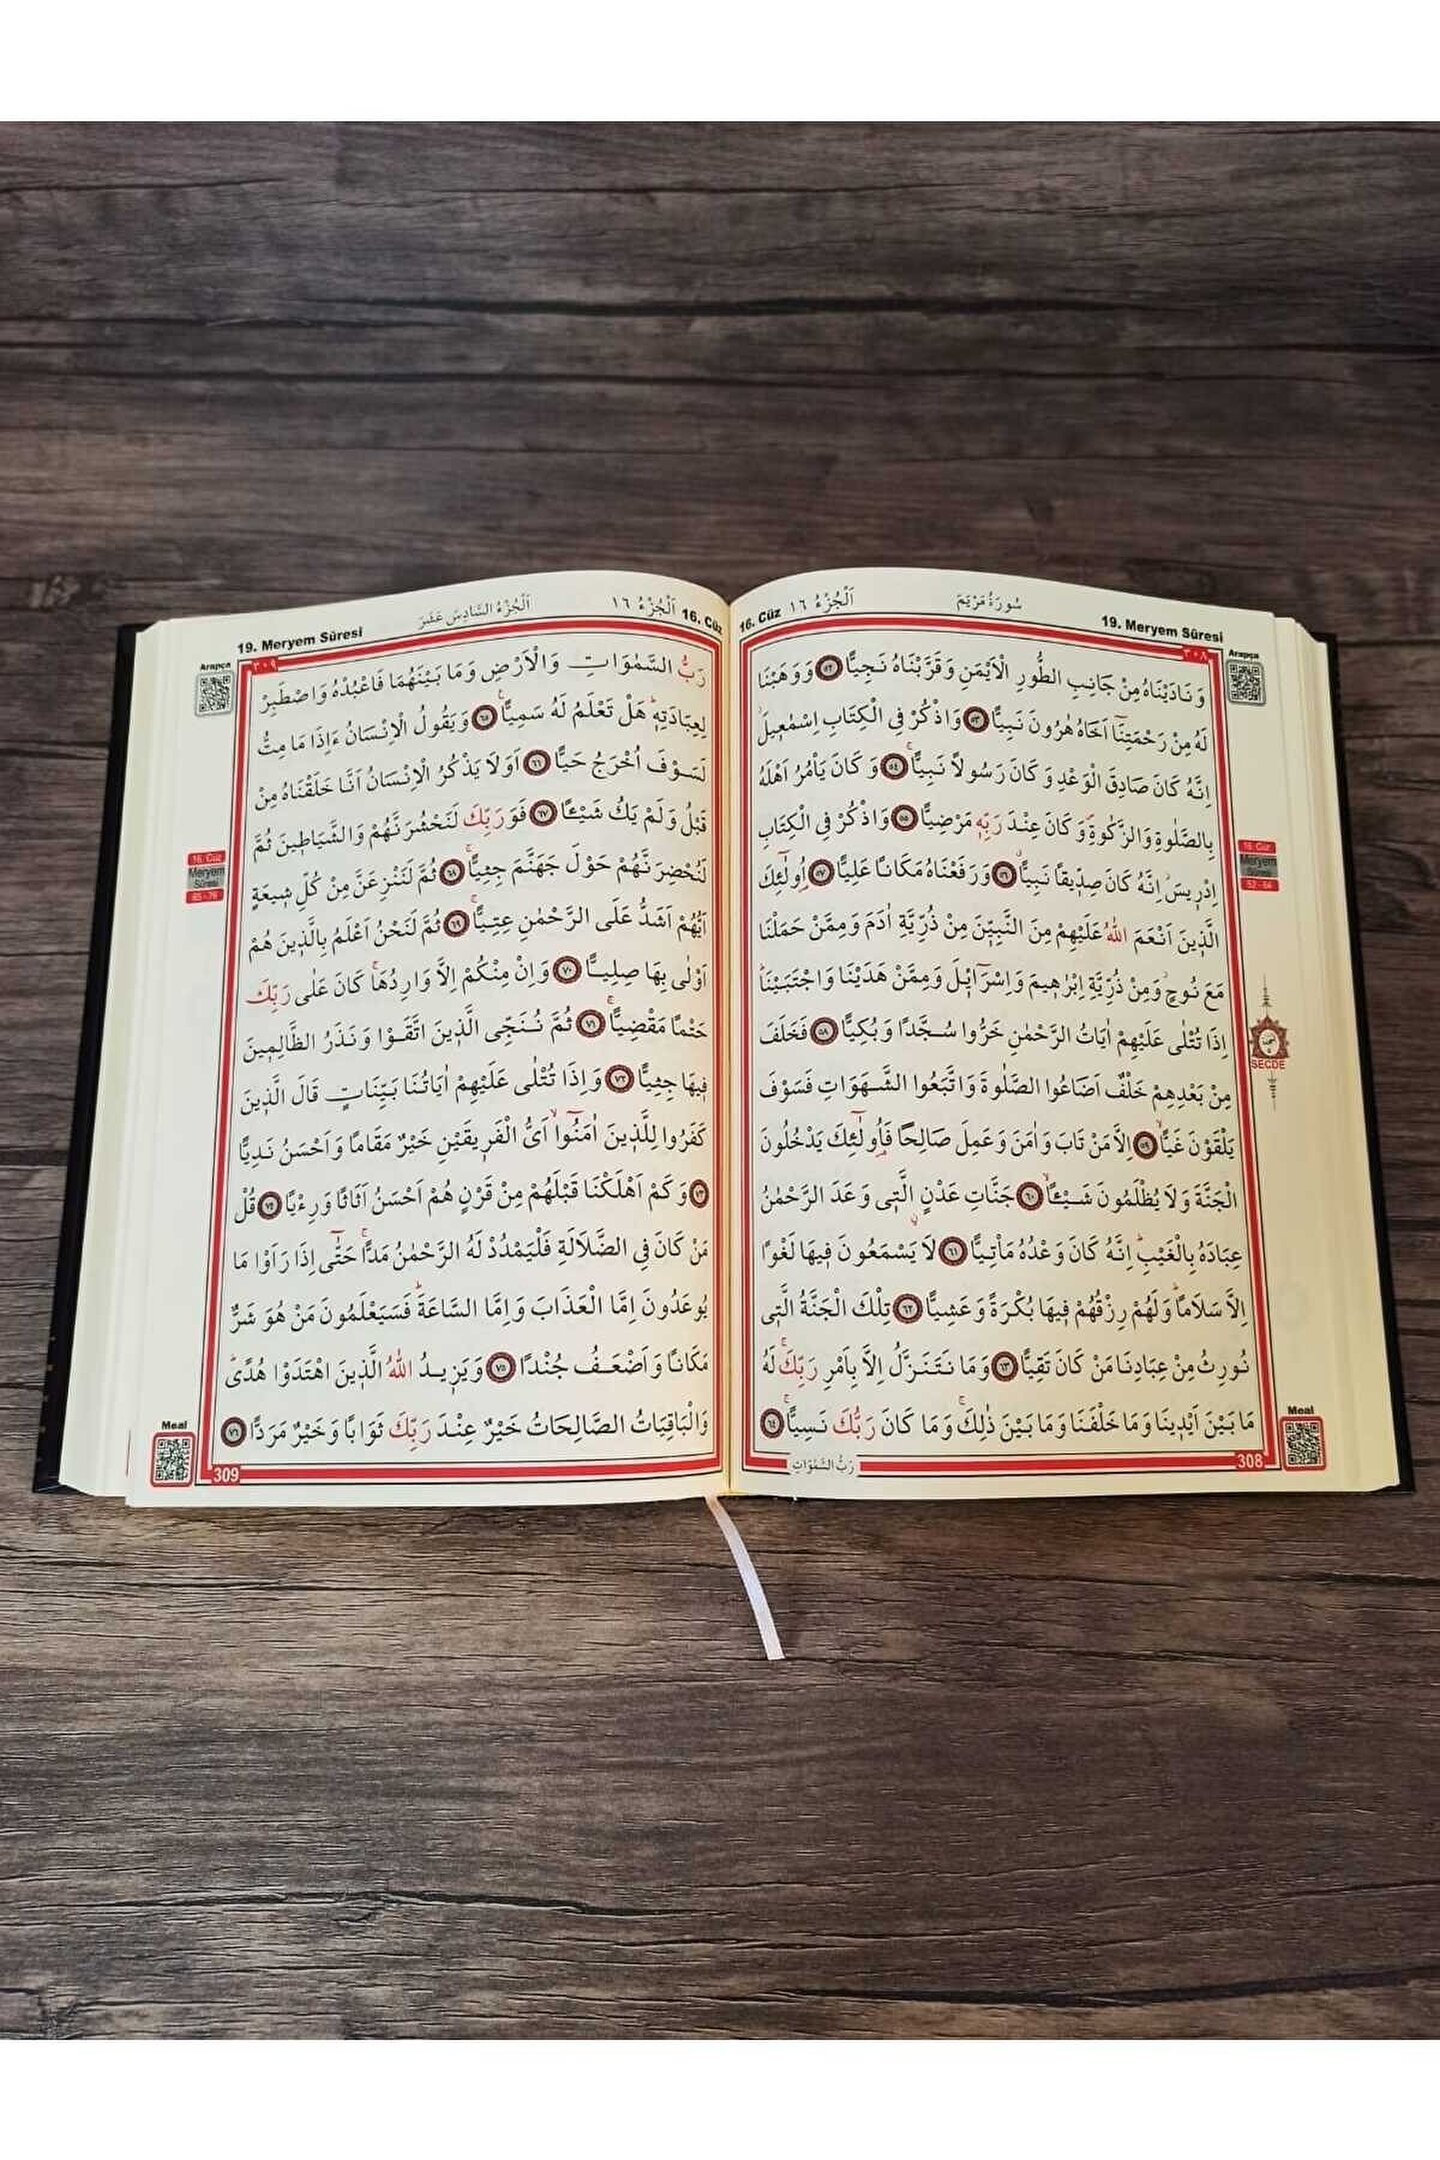 19. Meryem Sûresi
سُورَةُ مَرْيَمَ
اَلْجُزْءُ ١٦
16. Cüz
٣٠٨
Arapça
وَنَادَيْنَاهُ مِنْ جَانِبِ الطُّورِ الْاَيْمَنِ وَقَرَّبْنَاهُ نَجِيًّا ٥٢ وَوَهَبْنَا
لَهُ مِنْ رَحْمَتِنَٓا اَخَاهُ هٰرُونَ نَبِيًّا ٥٣ وَاذْكُرْ فِي الْكِتَابِ اِسْمٰعٖيلَۘ
اِنَّهُ كَانَ صَادِقَ الْوَعْدِ وَكَانَ رَسُولًا نَبِيًّاۚ ٥٤ وَكَانَ يَأْمُرُ اَهْلَهُ
بِالصَّلٰوةِ وَالزَّكٰوةِۖ وَكَانَ عِنْدَ رَبِّهٖ مَرْضِيًّا ٥٥ وَاذْكُرْ فِي الْكِتَابِ
اِدْرٖيسَۘ اِنَّهُ كَانَ صِدّٖيقًا نَبِيًّاۗ ٥٦ وَرَفَعْنَاهُ مَكَانًا عَلِيًّا ٥٧ اُو۬لٰٓئِكَ
الَّذٖينَ اَنْعَمَ اللّٰهُ عَلَيْهِمْ مِنَ النَّبِيّٖنَ مِنْ ذُرِّيَّةِ اٰدَمَ وَمِمَّنْ حَمَلْنَا
مَعَ نُوحٍۘ وَمِنْ ذُرِّيَّةِ اِبْرٰهٖيمَ وَاِسْرَٓائٖلَ وَمِمَّنْ هَدَيْنَا وَاجْتَبَيْنَاۜ
اِذَا تُتْلٰى عَلَيْهِمْ اٰيَاتُ الرَّحْمٰنِ خَرُّوا سُجَّدًا وَبُكِيًّا ٥٨ فَخَلَفَ
مِنْ بَعْدِهِمْ خَلْفٌ اَضَاعُوا الصَّلٰوةَ وَاتَّبَعُوا الشَّهَوَاتِ فَسَوْفَ
يَلْقَوْنَ غَيًّاۙ ٥٩ اِلَّا مَنْ تَابَ وَاٰمَنَ وَعَمِلَ صَالِحًا فَاُو۬لٰٓئِكَ يَدْخُلُونَ
الْجَنَّةَ وَلَا يُظْلَمُونَ شَيْـًٔاۙ ٦٠ جَنَّاتِ عَدْنٍۨ الَّتٖى وَعَدَ الرَّحْمٰنُ
عِبَادَهُ بِالْغَيْبِۜ اِنَّهُ كَانَ وَعْدُهُ مَأْتِيًّا ٦١ لَا يَسْمَعُونَ فٖيهَا لَغْوًا
اِلَّا سَلَامًاۜ وَلَهُمْ رِزْقُهُمْ فٖيهَا بُكْرَةً وَعَشِيًّا ٦٢ تِلْكَ الْجَنَّةُ الَّتٖى
نُورِثُ مِنْ عِبَادِنَا مَنْ كَانَ تَقِيًّا ٦٣ وَمَا نَتَنَزَّلُ اِلَّا بِاَمْرِ رَبِّكَۚ لَهُ
مَا بَيْنَ اَيْدٖينَا وَمَا خَلْفَنَا وَمَا بَيْنَ ذٰلِكَۚ وَمَا كَانَ رَبُّكَ نَسِيًّاۚ ٦٤
رَبُّ السَّمٰوَاتِ
308
16. Cüz
Meryem
Sûresi
52 - 64
SECDE
Meal
16. Cüz
اَلْجُزْءُ ١٦
اَلْجُزْءُ السَّادِسَ عَشَرَ
19. Meryem Sûresi
٣٠٩
Arapça
رَبُّ السَّمٰوَاتِ وَالْاَرْضِ وَمَا بَيْنَهُمَا فَاعْبُدْهُ وَاصْطَبِرْ
لِعِبَادَتِهٖۜ هَلْ تَعْلَمُ لَهُ سَمِيًّاۚ ٦٥ وَيَقُولُ الْاِنْسَانُ ءَاِذَا مَا مِتُّ
لَسَوْفَ اُخْرَجُ حَيًّا ٦٦ اَوَلَا يَذْكُرُ الْاِنْسَانُ اَنَّا خَلَقْنَاهُ مِنْ
قَبْلُ وَلَمْ يَكُ شَيْـًٔا ٦٧ فَوَرَبِّكَ لَنَحْشُرَنَّهُمْ وَالشَّيَاطٖينَ ثُمَّ
لَنُحْضِرَنَّهُمْ حَوْلَ جَهَنَّمَ جِثِيًّاۚ ٦٨ ثُمَّ لَنَنْزِعَنَّ مِنْ كُلِّ شٖيعَةٍ
اَيُّهُمْ اَشَدُّ عَلَى الرَّحْمٰنِ عِتِيًّاۚ ٦٩ ثُمَّ لَنَحْنُ اَعْلَمُ بِالَّذٖينَ هُمْ
اَوْلٰى بِهَا صِلِيًّا ٧٠ وَاِنْ مِنْكُمْ اِلَّا وَارِدُهَاۚ كَانَ عَلٰى رَبِّكَ
حَتْمًا مَقْضِيًّاۚ ٧١ ثُمَّ نُنَجِّى الَّذٖينَ اتَّقَوْا وَنَذَرُ الظَّالِمٖينَ
فٖيهَا جِثِيًّا ٧٢ وَاِذَا تُتْلٰى عَلَيْهِمْ اٰيَاتُنَا بَيِّنَاتٍ قَالَ الَّذٖينَ
كَفَرُوا لِلَّذٖينَ اٰمَنُٓواۙ اَىُّ الْفَرٖيقَيْنِ خَيْرٌ مَقَامًا وَاَحْسَنُ نَدِيًّا
٧٣ وَكَمْ اَهْلَكْنَا قَبْلَهُمْ مِنْ قَرْنٍ هُمْ اَحْسَنُ اَثَاثًا وَرِءْيًا ٧٤ قُلْ
مَنْ كَانَ فِي الضَّلَالَةِ فَلْيَمْدُدْ لَهُ الرَّحْمٰنُ مَدًّاۚ حَتّٰٓى اِذَا رَاَوْا مَا
يُوعَدُونَ اِمَّا الْعَذَابَ وَاِمَّا السَّاعَةَۜ فَسَيَعْلَمُونَ مَنْ هُوَ شَرٌّ
مَكَانًا وَاَضْعَفُ جُنْدًا ٧٥ وَيَزٖيدُ اللّٰهُ الَّذٖينَ اهْتَدَوْا هُدًىۜ
وَالْبَاقِيَاتُ الصَّالِحَاتُ خَيْرٌ عِنْدَ رَبِّكَ ثَوَابًا وَخَيْرٌ مَرَدًّا ٧٦
309
16. Cüz
Meryem
Sûresi
65 - 76
Meal